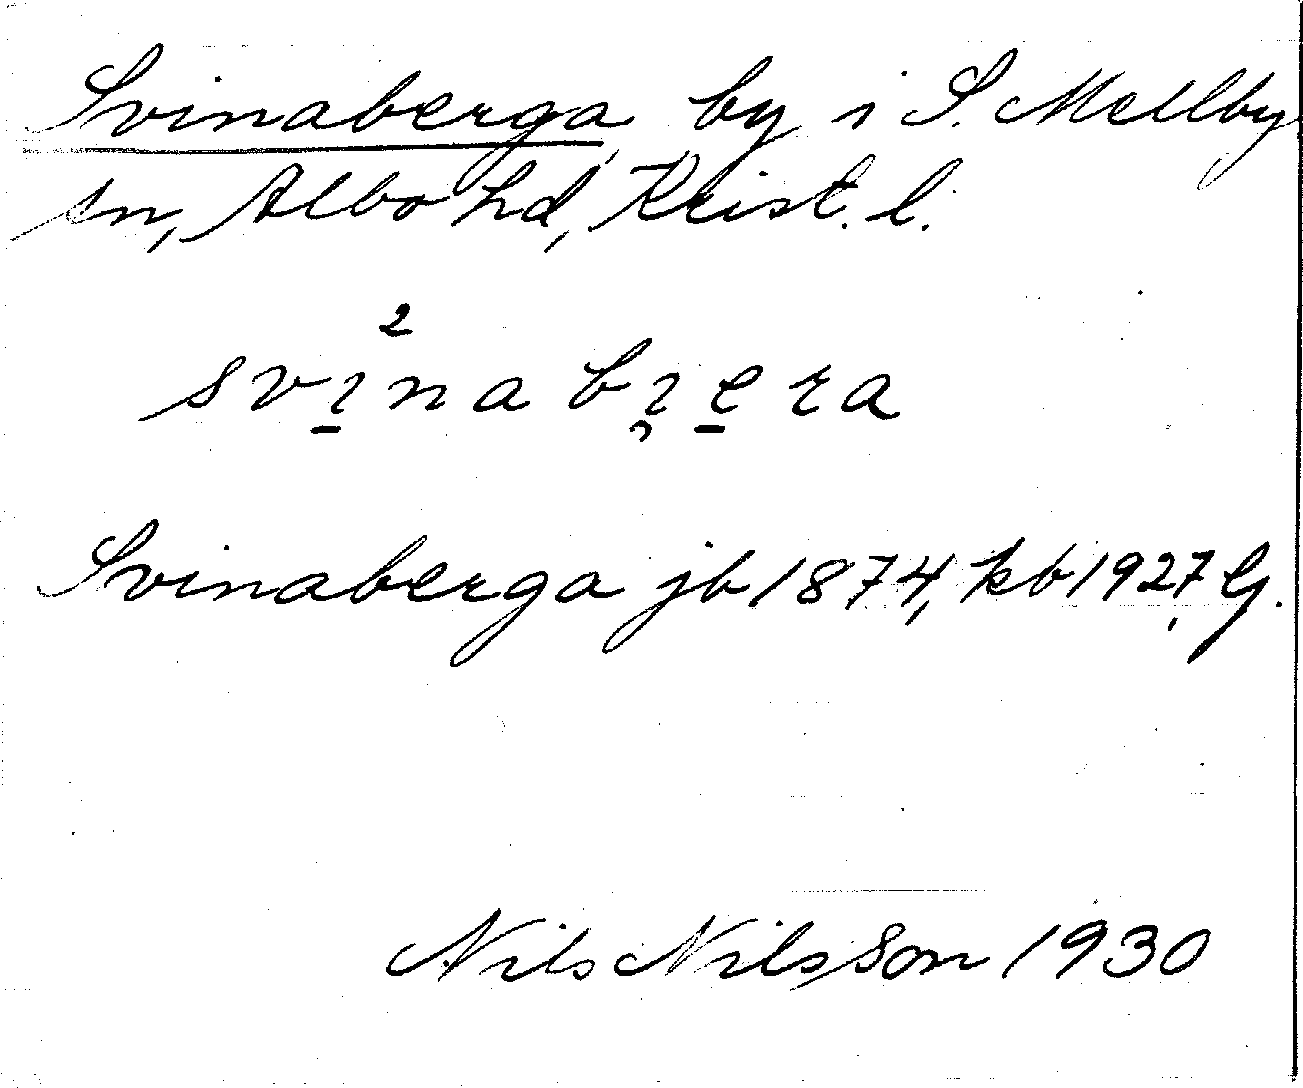 Svinaberga, by i S. Mellby
sn, Albo hd, Krist. l.
2
svı̱nabı̯e̱ra
Svinaberga jb 1874, kb 1927, G.
Nils Nilsson 1930